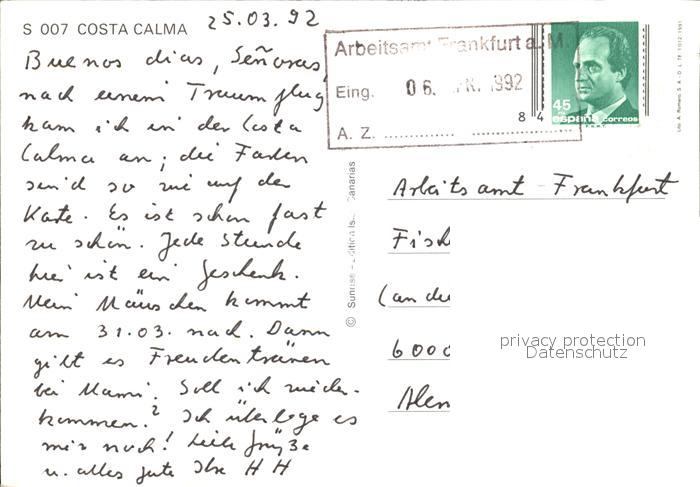 S 007 COSTA CALMA
25.03.92
Buenos dias, Señoras,
nach einem Traumflug
kam ich in der Costa
Calma an; die Farben
sind so wie auf der
Karte. Es ist schon fast
zu schön. Jede Stunde
hier ist ein Geschenk.
Mein Mäuschen kommt
am 31.03. nach. Dann
gibt es Freudentränen
bei Mami. Soll ich wieder-
kommen? Ich überlege es
mir noch! Liebe Grüße
u. alles Gute Ihr H H
© Sunrise - Canarias
Arbeitsamt Frankfurt a. M.
Eing. 06. 1992
A. Z.
8 4
45
españa correos
Arbeitsamt Frankfurt
Fisch
(an de
6000
privacy protection
Datenschutz